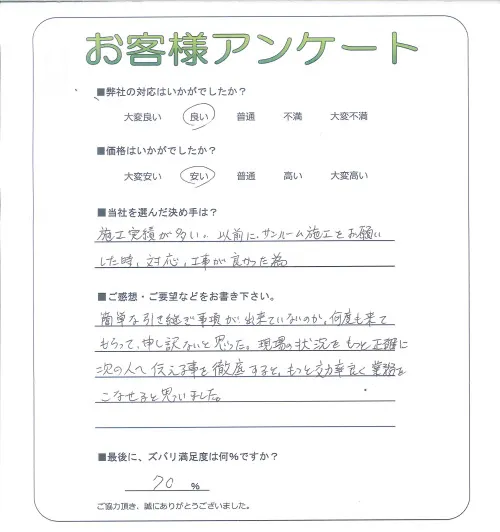 お客様アンケート
■弊社の対応はいかがでしたか？
大変良い 良い 普通 不満 大変不満
■価格はいかがでしたか？
大変安い 安い 普通 高い 大変高い
■当社を選んだ決め手は？
施工実績が多い。以前に、サンルーム施工をお願い
した時、対応、工事が良かった為
■ご感想・ご要望などをお書き下さい。
簡単な引き継ぎ事項が出来ていないのか、何度も来て
もらって、申し訳ないと思った。現場の状況をもっと正確に
次の人へ伝える事を徹底すると、もっと効率良く業務を
こなせると思いました。
■最後に、ズバリ満足度は何%ですか？
70 %
ご協力頂き、誠にありがとうございました。